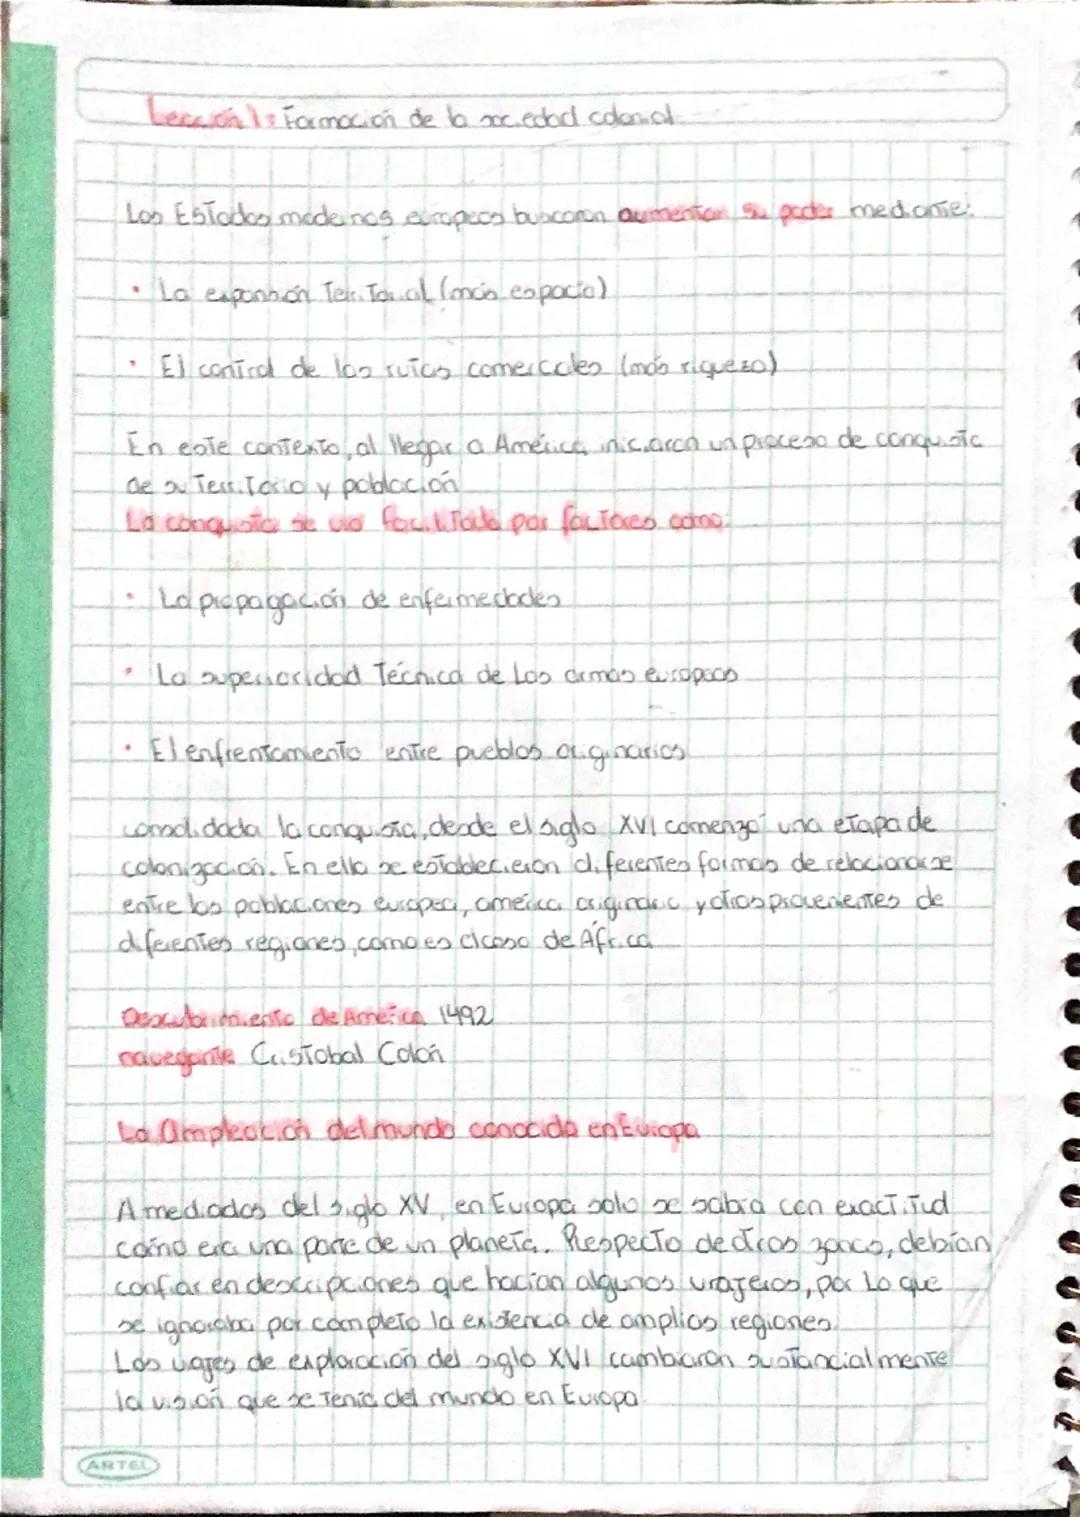 Lección 1: Formación de la sociedad colonial
Los Estados modernos europeos buscaron aumentar su poder mediante:
• La expansión Territorial (más espacio)
• El control de las rutas comerciales (más riqueza)
En este contexto, al llegar a América iniciaron un proceso de conquista
de su Territorio y población
La conquista se vio facilitada por factores como:
• La propagación de enfermedades
• La superioridad Técnica de Las armas europeas
• El enfrentamiento entre pueblos originarios
consolidada la conquista, desde el siglo XVI comenzó una etapa de
colonización. En ella se establecieron diferentes formas de relacionarse
entre las poblaciones europea, américa originaria y otras provenientes de
diferentes regiones, como es el caso de África
Descubrimiento de América 1492
navegante Cristobal Colón
La Ampleación del mundo conocido en Europa
A mediados del siglo XV, en Europa solo se sabía con exactitud
cómo era una parte de un planeta. Respecto de otras zonas, debían
confiar en descripciones que hacían algunos viajeros, por Lo que
se ignoraba por completo la existencia de amplias regiones
Los viajes de exploración del siglo XVI cambiaron sustancialmente
la visión que se Tenía del mundo en Europa.
ARTEL